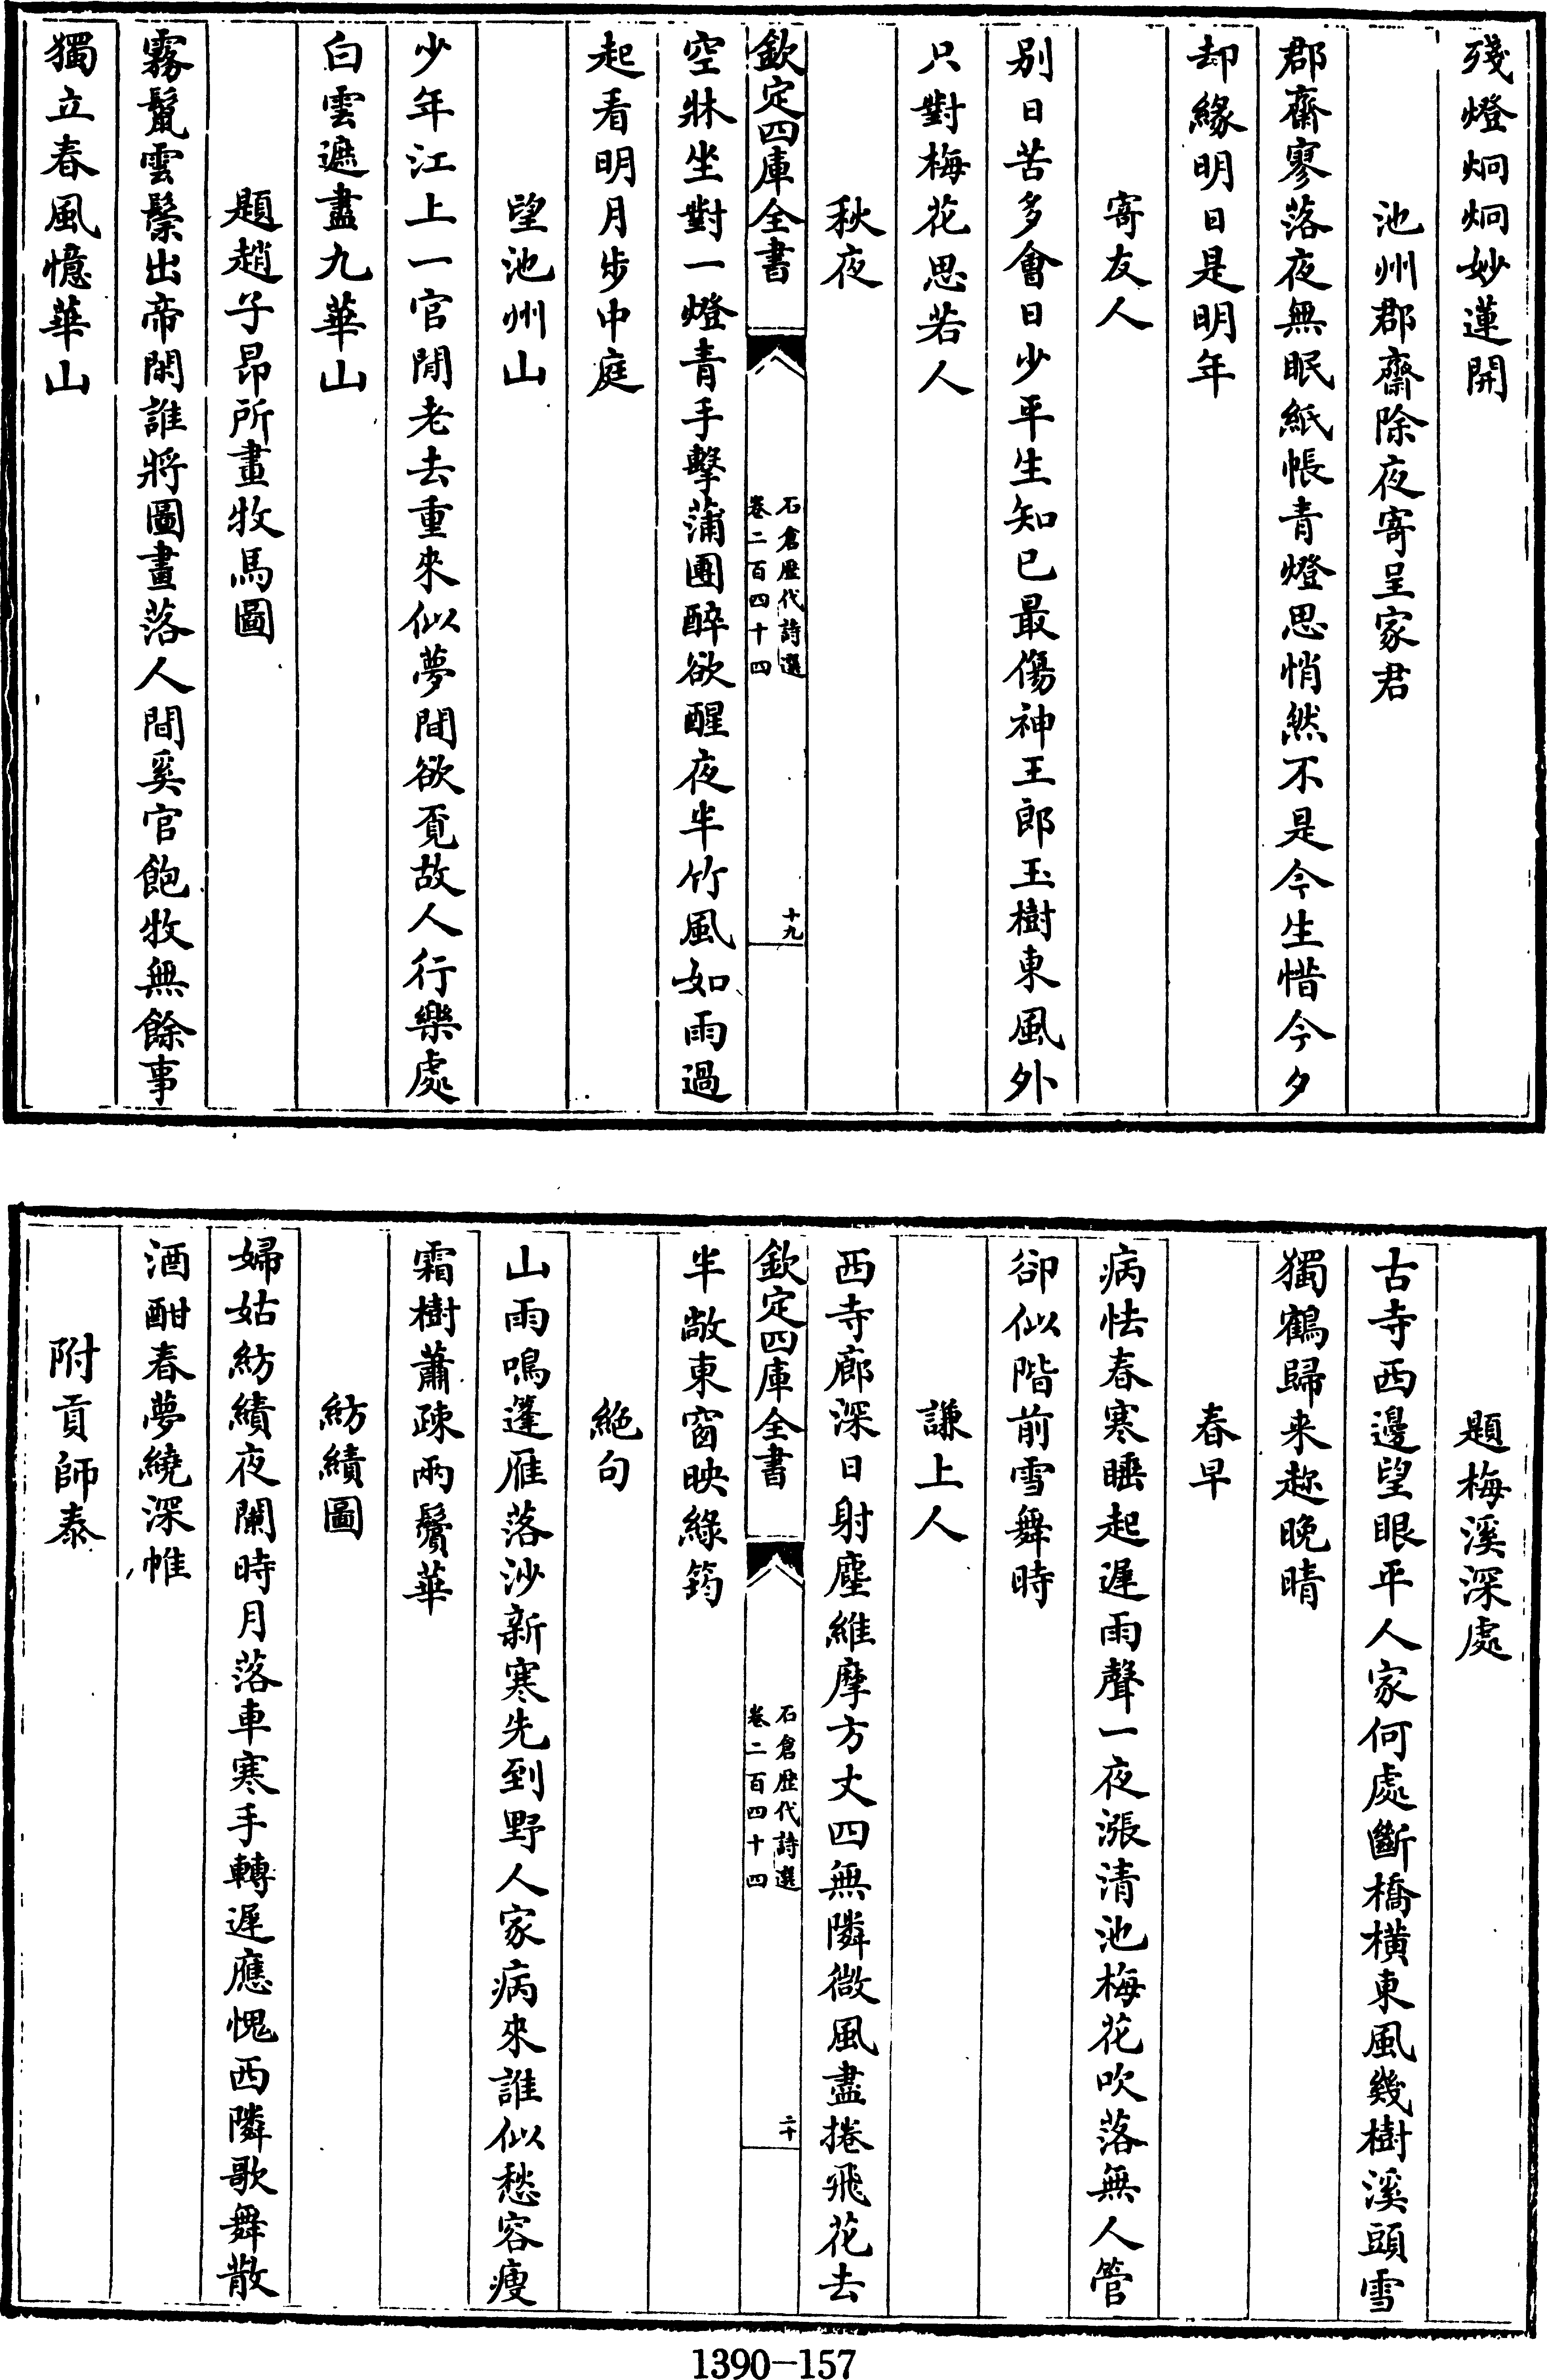 殘燈炯炯妙蓮開
池州郡齋除夜寄呈家君
郡齋寥落夜無眠紙帳青燈思悄然不是今生惜今夕
却緣明日是明年
寄友人
别日苦多會日少平生知已最傷神王郎玉樹東風外
只對梅花思若人
秋夜
欽定四庫全書
石倉歷代詩選
卷二百四十四
十九
空牀坐對一燈青手擊蒲團醉欲醒夜半竹風如雨過
起看明月步中庭
望池州山
少年江上一官閒老去重來似夢間欲覔故人行樂處
白雲遮盡九華山
題趙子昂所畫牧馬圖
霧鬛雲鬃出帝閑誰將圖畫落人間奚官飽牧無餘事
獨立春風憶華山
題梅溪深處
古寺西邊望眼平人家何處斷橋橫東風幾樹溪頭雪
獨鶴歸来趂晚晴
春早
病怯春寒睡起遲雨聲一夜漲清池梅花吹落無人管
卻似階前雪舞時
謙上人
西寺廊深日射塵維摩方丈四無隣微風盡捲飛花去
欽定四庫全書
石倉歷代詩選
卷二百四十四
二十
半敞東窗映綠筠
絶句
山雨鳴蓬雁落沙新寒先到野人家病來誰似愁容瘦
霜樹蕭疎兩鬢華
紡績圖
婦姑紡績夜闌時月落車寒手轉遲應愧西隣歌舞散
酒酣春夢繞深帷
附貢師泰
1390-157